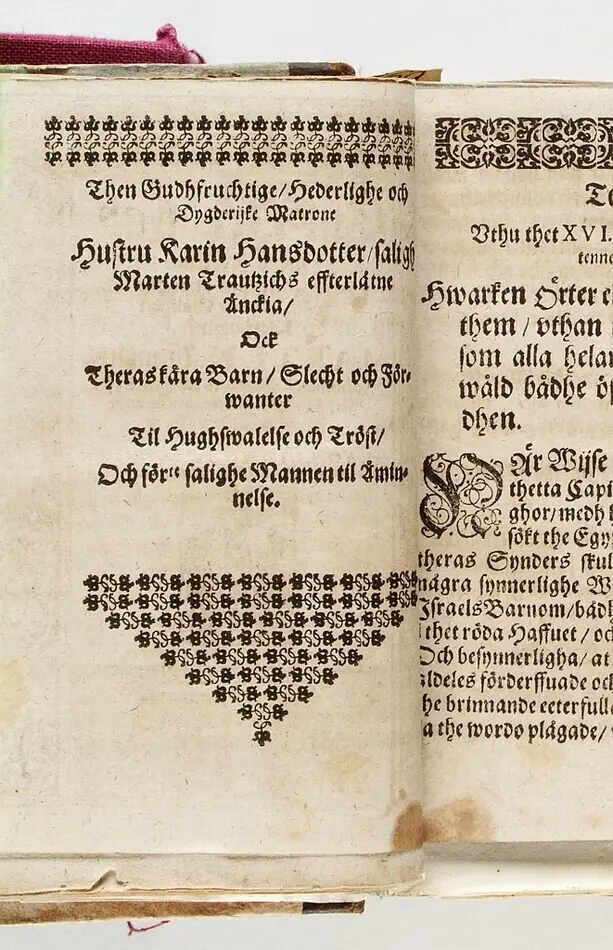 Then Gudhfruchtige/Hederlighe och
Dygderijke Matrone
Hustru Karin Hansdotter/saligh
Marten Trautzichs effterlåtne
Änckia/
Ock
Theras kära Barn/ Slecht och För-
wanter
Til Hughswalelse och Tröst/
Och förᵗᵉ salighe Mannen til Åmin-
nelse.
Te
Vthu thet XVI.
tenne
Hwarken Örter e
them / vthan
som alla helan
wåld bådhe öf
dhen.
När Wijse
thetta Capi
ghor/medh
sökt the Egy
theras Synders skul
några synnerlighe W
Israels Barnom/bådh
thet röda Haffuet / oc
Och besynnerligha/ at
aldeles förderffuade och
he brinnande eeterfull
a the wordo plågade/